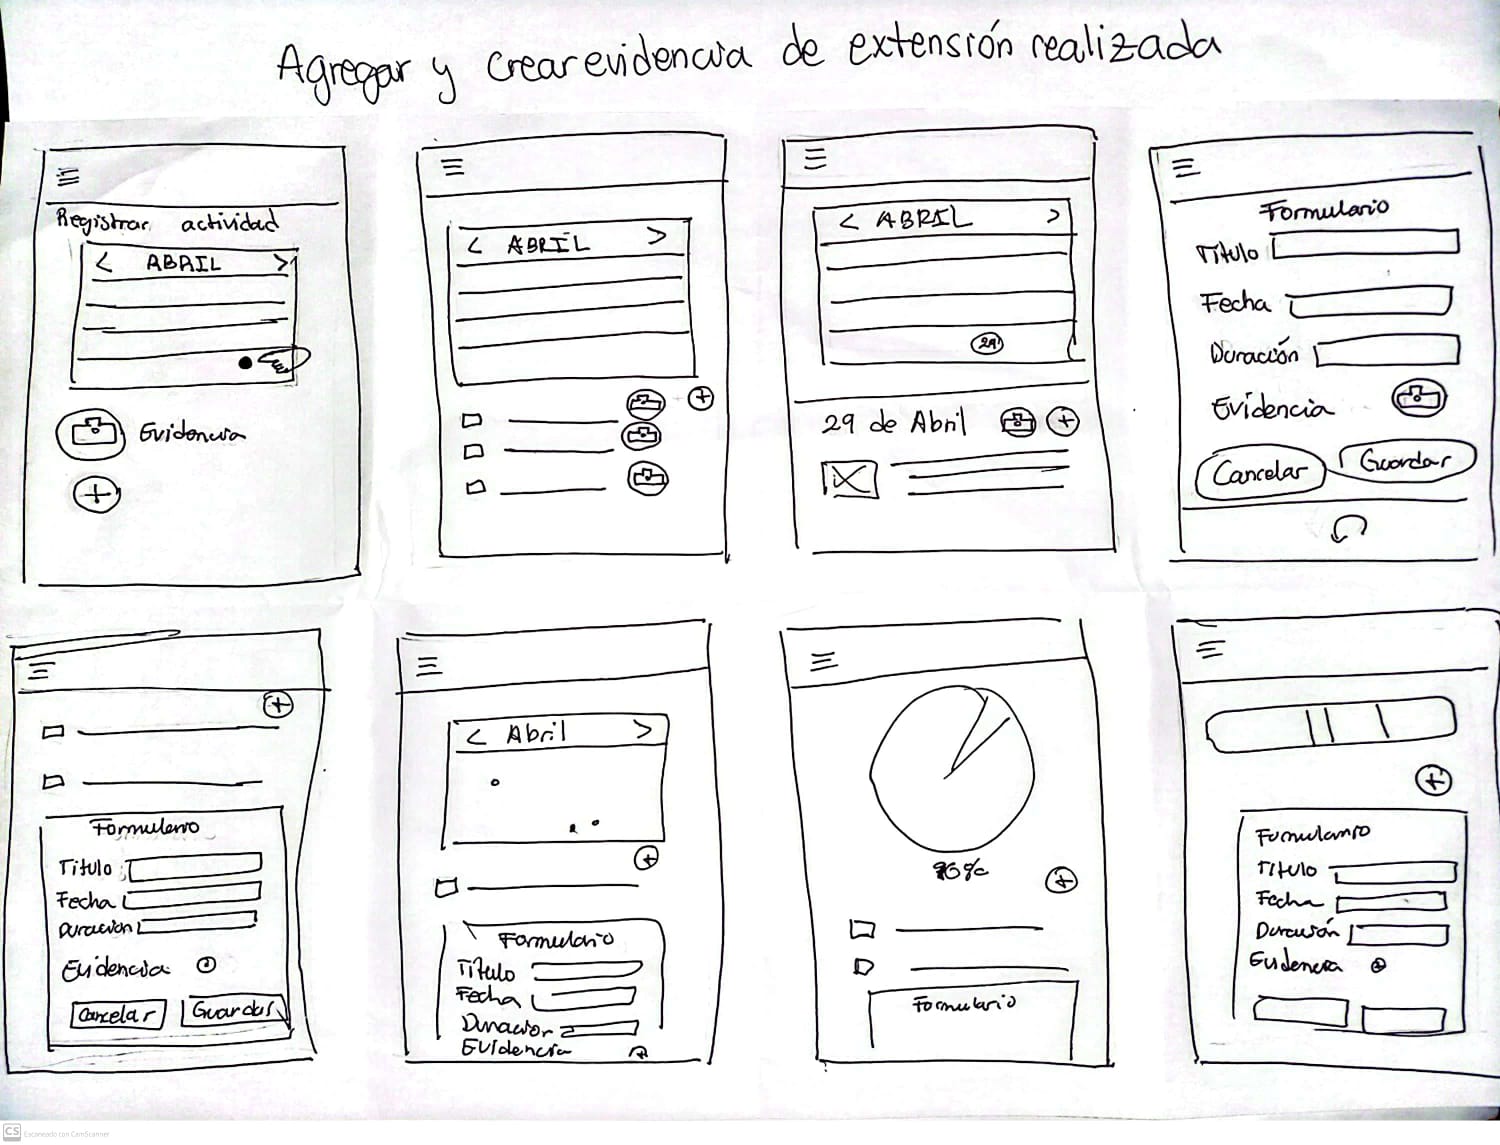 Agregar y crear evidencia de extensión realizada
Registrar actividad
< ABRIL >
Evidencia
+
< ABRIL >
+
< ABRIL >
29
29 de Abril +
Formulario
Título
Fecha
Duración
Evidencia
Cancelar Guardar
+
Formulario
Título
Fecha
Duración
Evidencia
Cancelar Guardar
< Abril >
+
Formulario
Título
Fecha
Duración
Evidencia
+
Formulario
+
Formulario
Título
Fecha
Duración
Evidencia
CS Escaneado con CamScanner